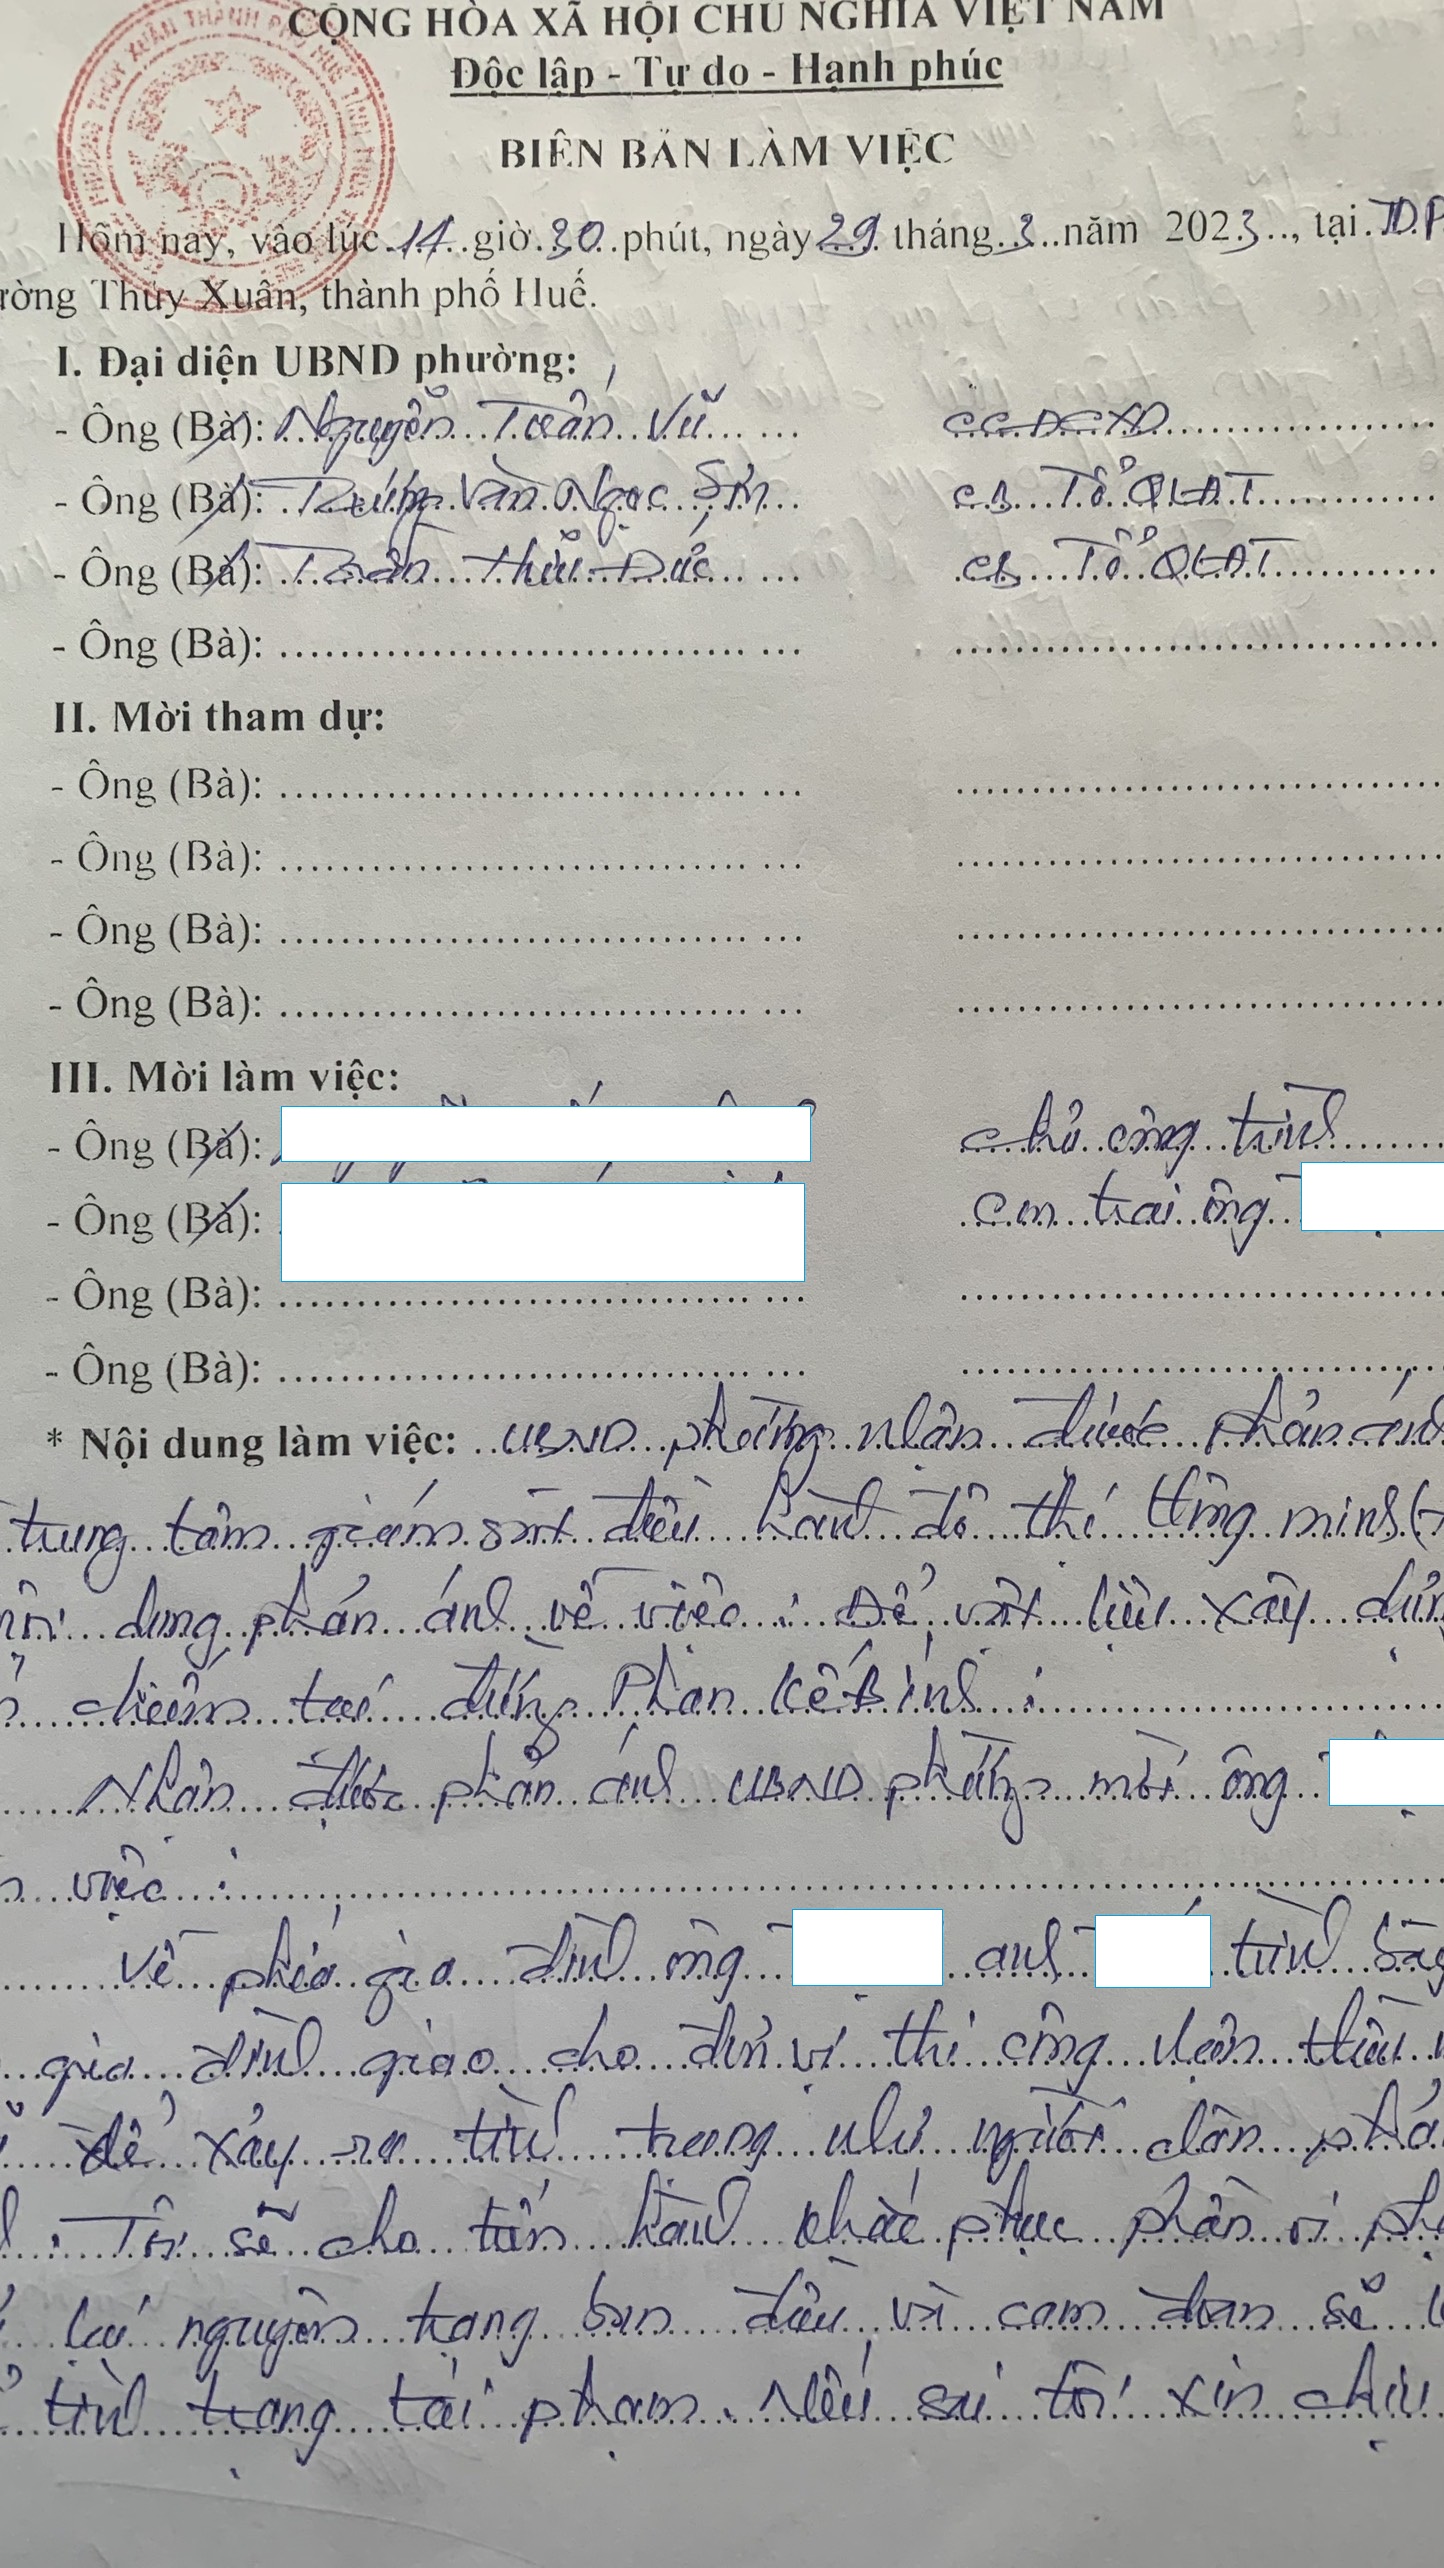 PHƯỜNG THỦY XUÂN THÀNH PHỐ HUẾ TỈNH THỪA
CỘNG HÒA XÃ HỘI CHỦ NGHĨA VIỆT NAM
Độc lập - Tự do - Hạnh phúc
BIÊN BẢN LÀM VIỆC
Hôm nay, vào lúc 14 giờ 30 phút, ngày 29 tháng 3 năm 2023, tại TDP
ường Thủy Xuân, thành phố Huế.
I. Đại diện UBND phường:
- Ông (Bà): Nguyễn Tuấn Vũ CCĐCXD
- Ông (Bà): Trương Văn Ngọc Sơn CB Tổ QLĐT
- Ông (Bà): Trần Hữu Đức CB Tổ QLĐT
- Ông (Bà):
II. Mời tham dự:
- Ông (Bà):
- Ông (Bà):
- Ông (Bà):
- Ông (Bà):
III. Mời làm việc:
- Ông (Bà): chủ công trình
- Ông (Bà): con trai ông
- Ông (Bà):
- Ông (Bà):
* Nội dung làm việc: UBND phường nhận được phản ánh
trung tâm giám sát điều hành đô thị thông minh (
nội dung phản ánh về việc: Để vật liệu xây dựng
chiếm tại đường Phan Kế Bính:
Nhận được phản ánh UBND phường mời ông
việc:
Về phía gia đình ông anh trình bày
gia đình giao cho đơn vị thi công vận
để xảy ra tình trạng như người dân phả
. Tôi sẽ cho tiến hành khắc phục phần vi phạ
lại nguyên trạng ban đầu và cam đoan sẽ
tình trạng tái phạm. Nếu sai tôi xin chịu